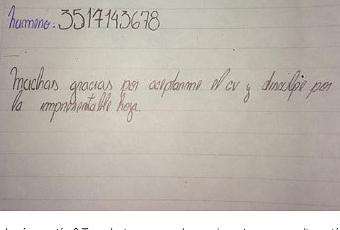 humero: 3517143678
muchas gracias por aceptarme el cv y disculpe por
la impresentable hoja.